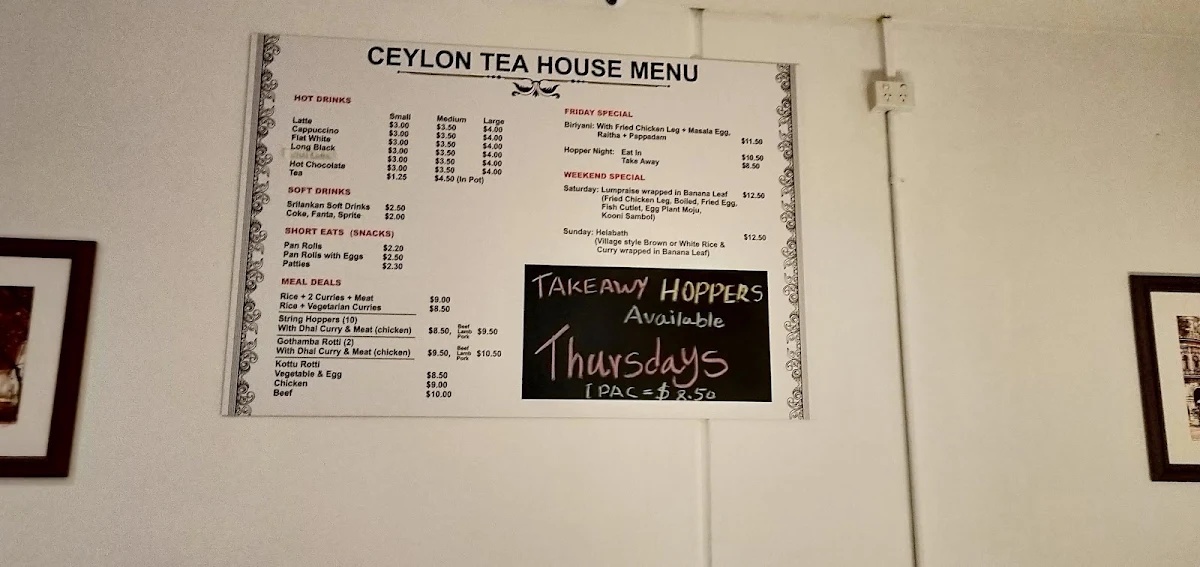 CEYLON TEA HOUSE MENU
HOT DRINKS
Small Medium Large
Latte $3.00 $3.50 $4.00
Cappuccino $3.00 $3.50 $4.00
Flat White $3.00 $3.50 $4.00
Long Black $3.00 $3.50 $4.00
$3.00 $3.50 $4.00
Hot Chocolate $3.00 $3.50 $4.00
Tea $1.25 $4.50 (In Pot)
SOFT DRINKS
Srilankan Soft Drinks $2.50
Coke, Fanta, Sprite $2.00
SHORT EATS (SNACKS)
Pan Rolls $2.20
Pan Rolls with Eggs $2.50
Patties $2.30
MEAL DEALS
Rice + 2 Curries + Meat $9.00
Rice + Vegetarian Curries $8.50
String Hoppers (10)
With Dhal Curry & Meat (chicken) $8.50, Beef Lamb Pork $9.50
Gothamba Rotti (2)
With Dhal Curry & Meat (chicken) $9.50, Beef Lamb Pork $10.50
Kottu Rotti
Vegetable & Egg $8.50
Chicken $9.00
Beef $10.00
FRIDAY SPECIAL
Biriyani: With Fried Chicken Leg + Masala Egg,
Raitha + Pappadam $11.50
Hopper Night: Eat In $10.50
Take Away $8.50
WEEKEND SPECIAL
Saturday: Lumpraise wrapped in Banana Leaf $12.50
(Fried Chicken Leg, Boiled, Fried Egg,
Fish Cutlet, Egg Plant Moju,
Kooni Sambol)
Sunday: Helabath $12.50
(Village style Brown or White Rice &
Curry wrapped in Banana Leaf)
TAKEAWY HOPPERS
Available
Thursdays
1 PAC = $8.50